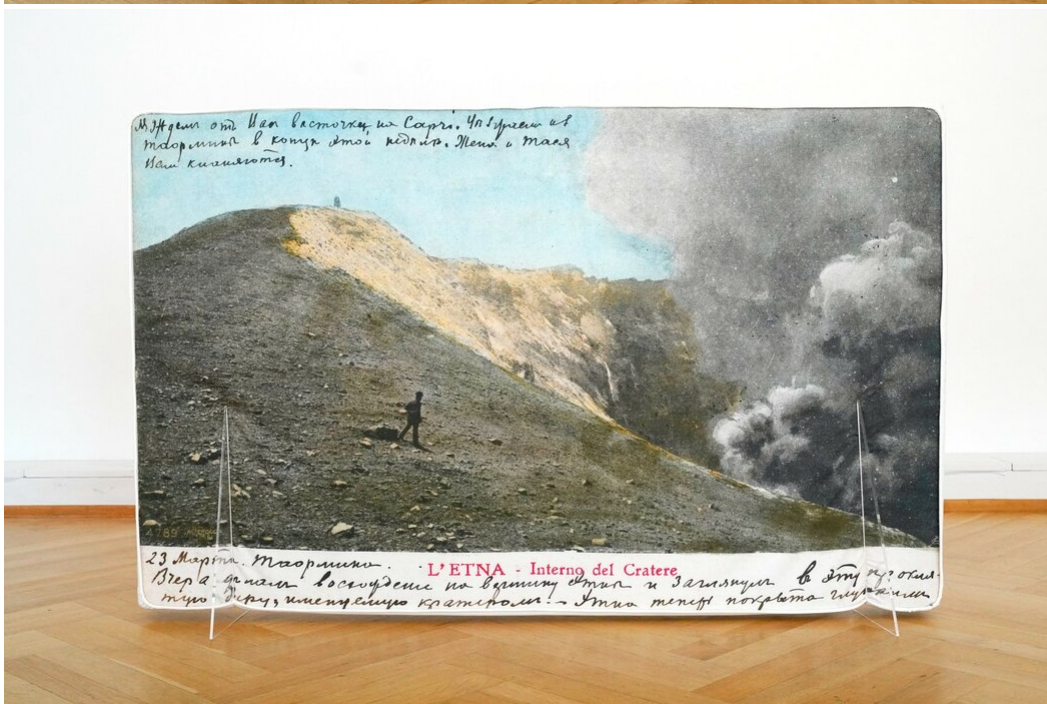 от Вас весточки на Capri. из
Таормины в конце этой недели. Жена и Тася
Вам кланяются.
23 Марта. Таормина.
L'ETNA - Interno del Cratere
Вчера делал восхождение на вершину Этны и заглянул в эту прокля-
тую дыру, именуемую кратером. - Этна теперь покрыта глубоким